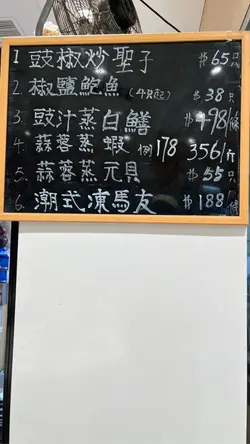 1 豉椒炒聖子 $65/只
2. 椒鹽鮑魚(4只起) $38/只
3. 豉汁蒸白鱔 $498/條
4. 蒜蓉蒸蝦 例178 356/斤
5. 蒜蓉蒸元貝 $55/只
6. 潮式凍馬友 $188/條